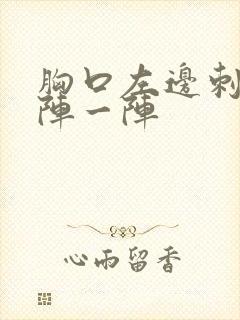 胸口左邊刺
陣一陣
心雨留香